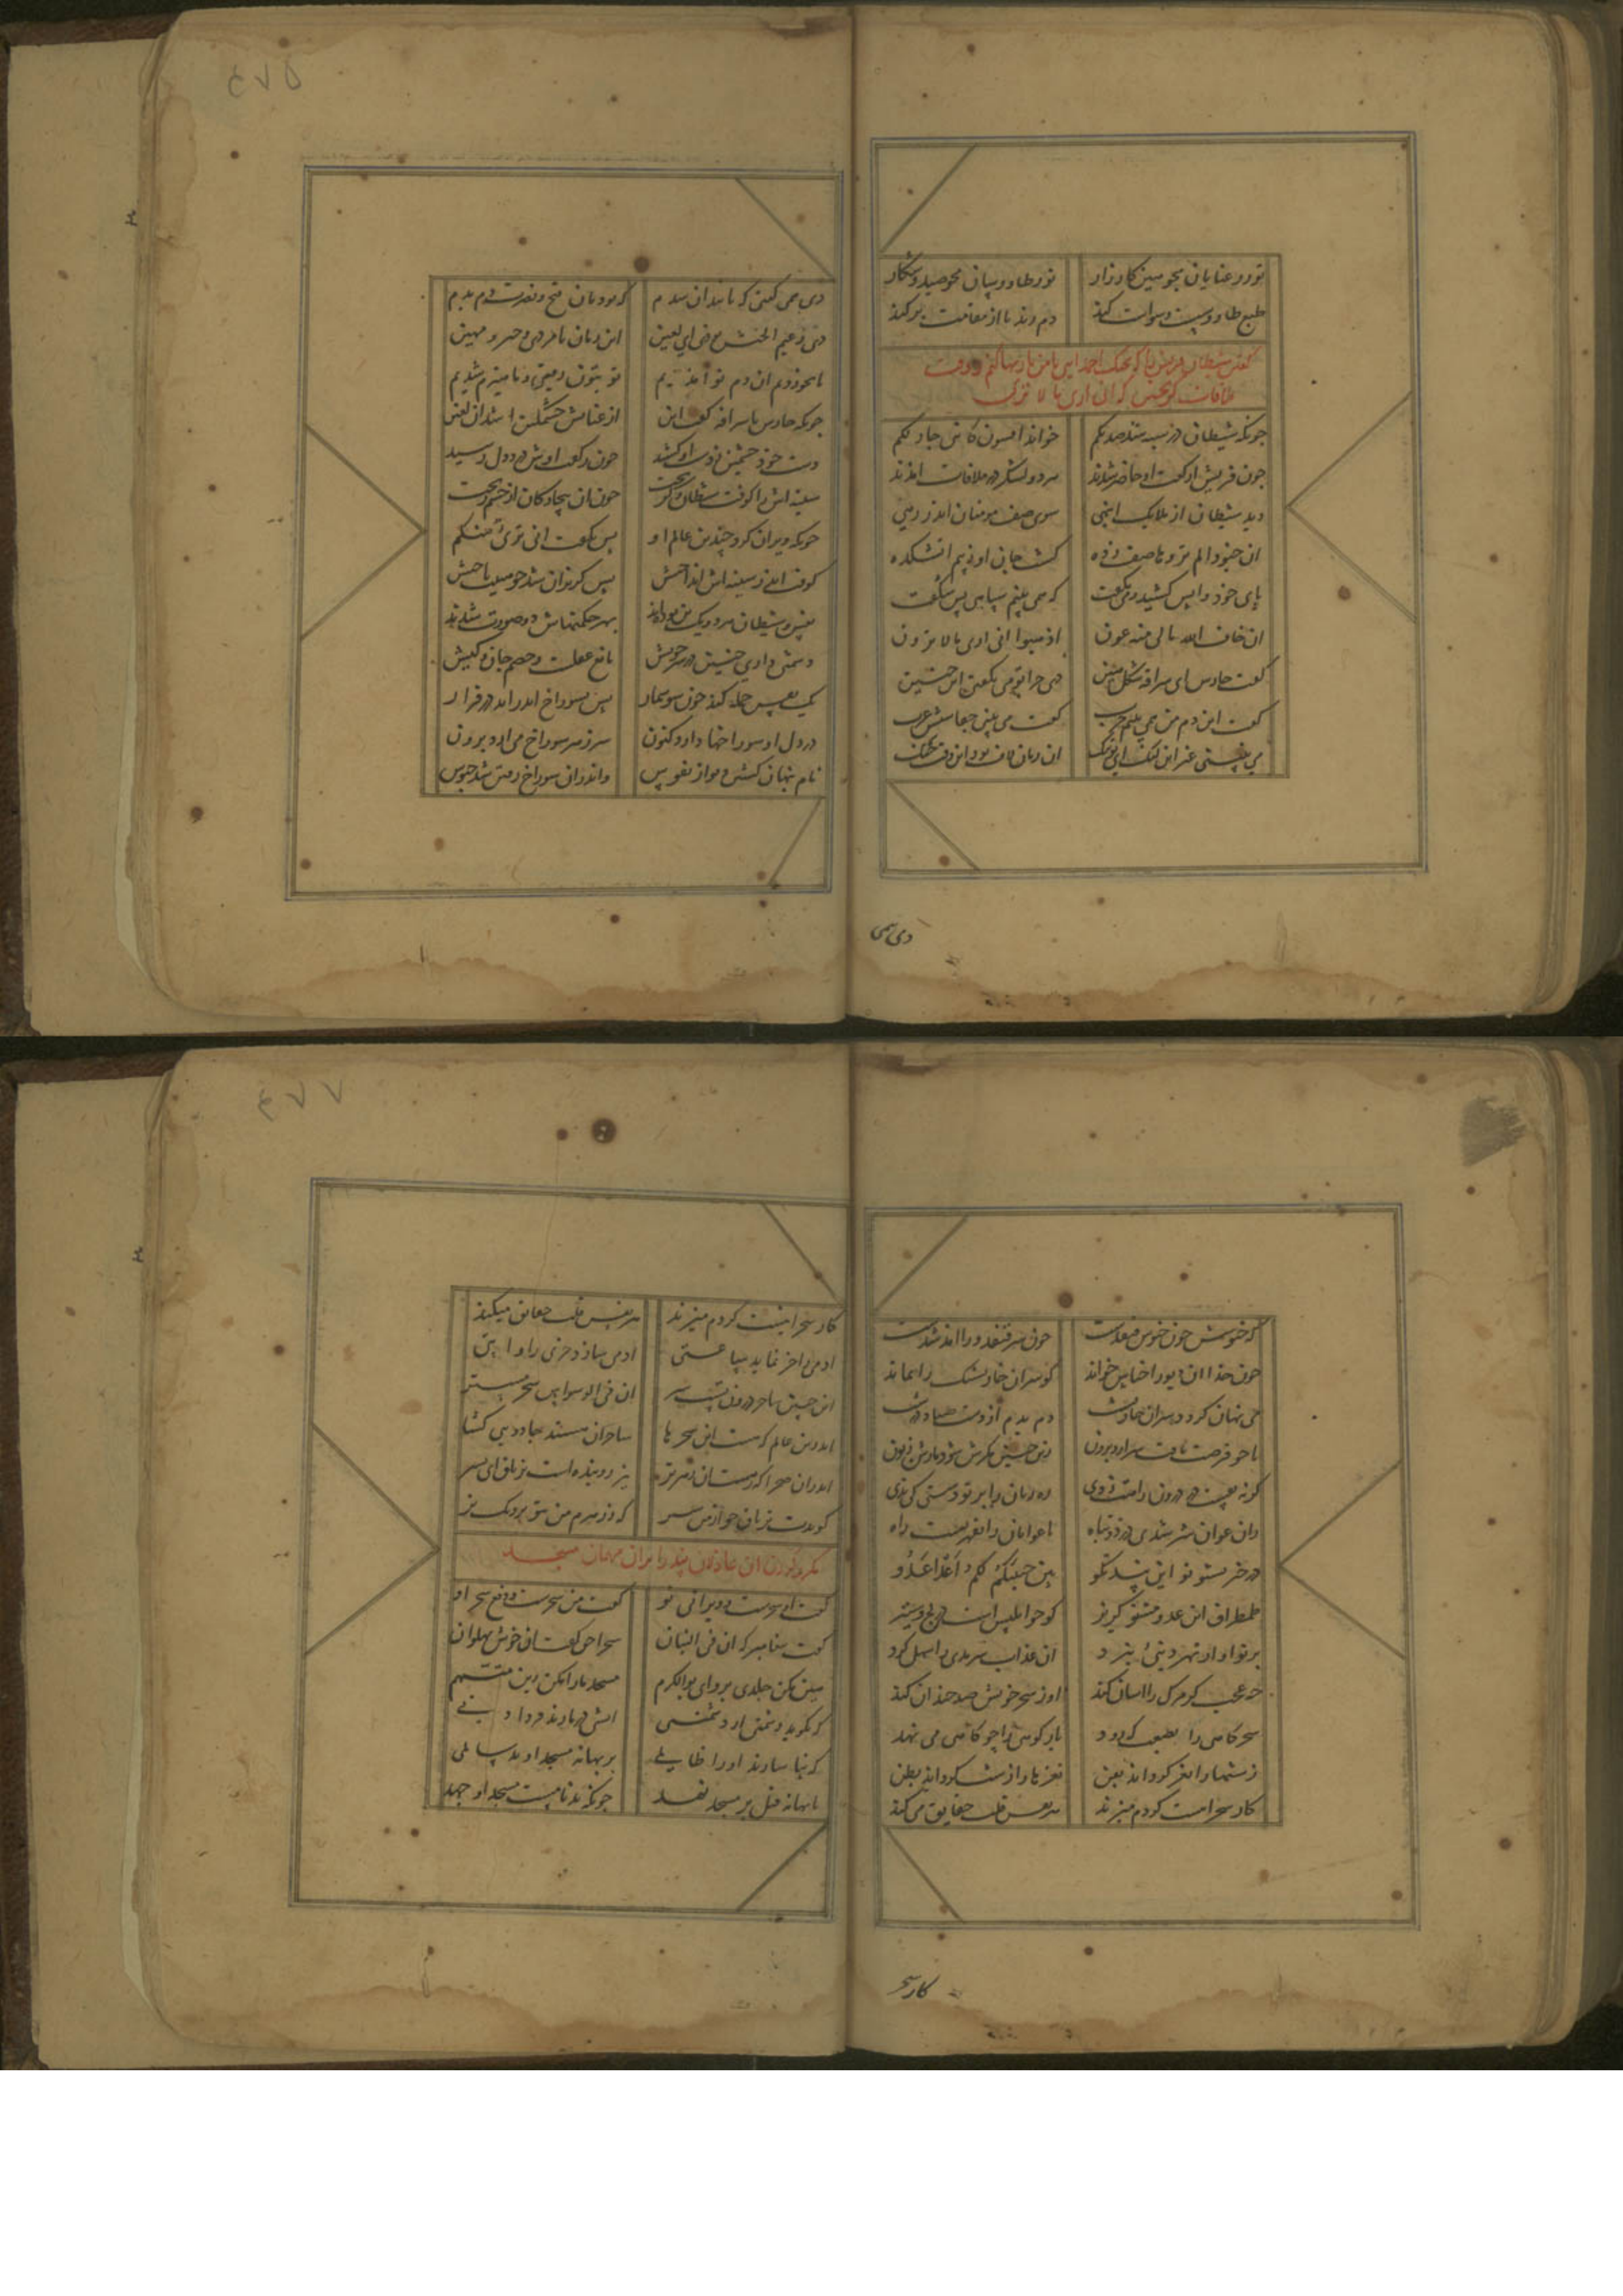 تو رعنایان مجو هین کارزار
تو ز طاوسان مجو صید و شکار
طبع طاوسست وسواست کند
دم زند تا از مقامت بر کند
گفتن شیطان قریش را که بجنگ احمد آیید که من یاریها کنم و وقت
ملاقات گریختن که انی اری ما لا ترون
خواند افسون کانی جار لکم
چون قریش از گفت او حاضر شدند
هر دو لشکر در ملاقات آمدند
دید شیطان از ملایک اسپهی
سوی صف مومنان اندر رهی
ان جنودا لم تروها صف زده
گشت جان او ز بیم آتشکده
پای خود واپس کشیده می گرفت
که همی بینم سپاهی بس شگفت
ای اخاف الله مالی منه عون
اذهبوا انی اری ما لا ترون
گفت حارث ای سراقه شکل هین
دی چرا تو می نگفتی این چنین
گفت این دم من همی بینم حرب
گفت می بینی جعاشیش عرب
می نبینی غیر این لیک ای تو ننگ
آن زمان لاف بود این وقت جنگ
دی همی
دی همی گفتی که پایندان شدم
که بودتان فتح و نصرت دم بدم
دی زعیم الجیش بودی ای لعین
این زمان نامرد و مهین
تا بخوردیم آن دم تو و آمدیم
تو بتون رفتی و ما هیزم شدیم
چونکه حارث با سراقه گفت این
از عتابش خشمگین شد آن لعین
دست خود خشمین ز دست او کشید
چون ز گفت اوش درد دل رسید
سینه اش را کوفت شیطان و گریخت
خون آن بیچارگان زین مکر ریخت
چونکه ویران کرد چندین عالم او
پس بگفت انی بریء منکم
کوفت اندر سینه اش انداختش
پس گریزان شد چو هیبت تاختش
نفس و شیطان هر دو یک تن بوده اند
بهر حکمتهاش دو صورت شدند
دشمنی داری چنین در سر خویش
مانع عقلست و خصم جان و کیش
یک نفس حمله کند چون سوسمار
پس بسوراخ اندر آید در فرار
در دل او سوراخها دارد کنون
سر ز هر سوراخ می آرد برون
نام پنهان گشتن دیو از نفوس
واندر آن سوراخ رفتن شد خنوس
که خنوسش چون خنوس قنفذست
چون سر قنفذ ورا آمد شدست
چون خدا آن دیو را خناس خواند
کو سر آن خارپشتک را بماند
می نهان گردد سر آن خارپشت
دم بدم از بیم صیاد درشت
تا چو فرصت یافت سر آرد برون
زین چنین مکرش شود مارش زبون
گرنه نفس از اندرون راهت زدی
ره زنان را بر تو دستی کی بدی
زان عوان سر شدی دزد و تباه
تا عوانان را بقهر تست راه
در خبر بشنو تو این پند نکو
بین جنبیکم لکم اعدا عدو
طمطراق این عدو مشنو گریز
کو چو ابلیس است در لج و ستیز
بر تو او از بهر دنیی و نبرد
آن عذاب سرمدی را سهل کرد
چه عجب گر مرگ را آسان کند
او ز سحر خویش صد چندان کند
سحر کاهی را بصنعت که کند
باز کوهی را چو کاهی می تند
زشتها را نغز گرداند بفن
نغزها را زشت گرداند بظن
کار سحر اینست کو دم میزند
هر نفس قلب حقایق می کند
کار سحر
کار سحر اینست کو دم میزند
هر نفس قلب حقایق میکند
آدمی را خر نماید ساعتی
آدمی سازد خری را و آیتی
این چنین ساحر درون تست سر
ان فی الوسواس سحرا مستتر
اندرین عالم که هست این سحرها
ساحران هستند جادویی گشا
اندر آن صحرا که رست آن زهر تر
نیز روییده است تریاق ای پسر
گویدت تریاق از من جو سپر
که ز زهرم من بتو نزدیک تر
مکرر کردن آن عاذلان پند را بر آن مهمان مسجد
گفت او سحرست و ویرانی تو
گفت من سحرست و دفع سحر او
گفت پیغامبر که ان فی البیان
سحرا حق گفت آن خوش پهلوان
هین مکن جلدی برو ای بوالکرم
مسجد ما را مکن زین متهم
که بگوید دشمنی از دشمنی
آتشی در ما زند فردا دنی
که بتاسانید او را ظالمی
بر بهانه مسجد او بد سالمی
تا بهانه قتل بر مسجد نهد
چونکه بدنامست مسجد او جهد